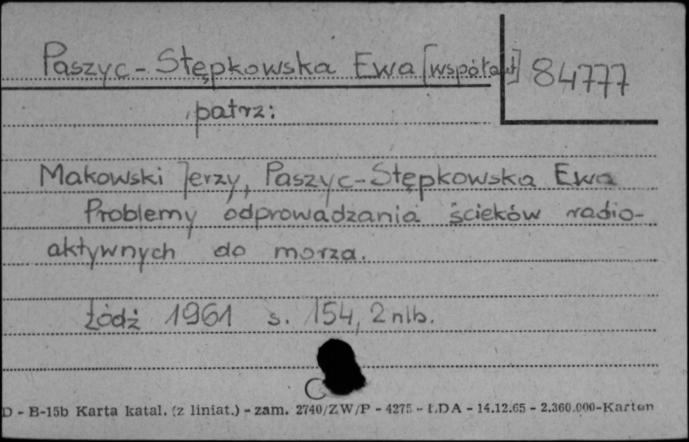 Paszyc-Stępkowska Ewa [współaut] 84777
patrz:
Makowski Jerzy, Paszyc-Stępkowska Ewa
Problemy odprowadzania ścieków radio-
aktywnych do morza.
Łódź 1961 s. 154, 2 nlb.
C
D - B-15b Karta katal. (z liniat.) - zam. 2740/ZW/P - 4275 - LDA - 14.12.65 - 2.360.000-Karton